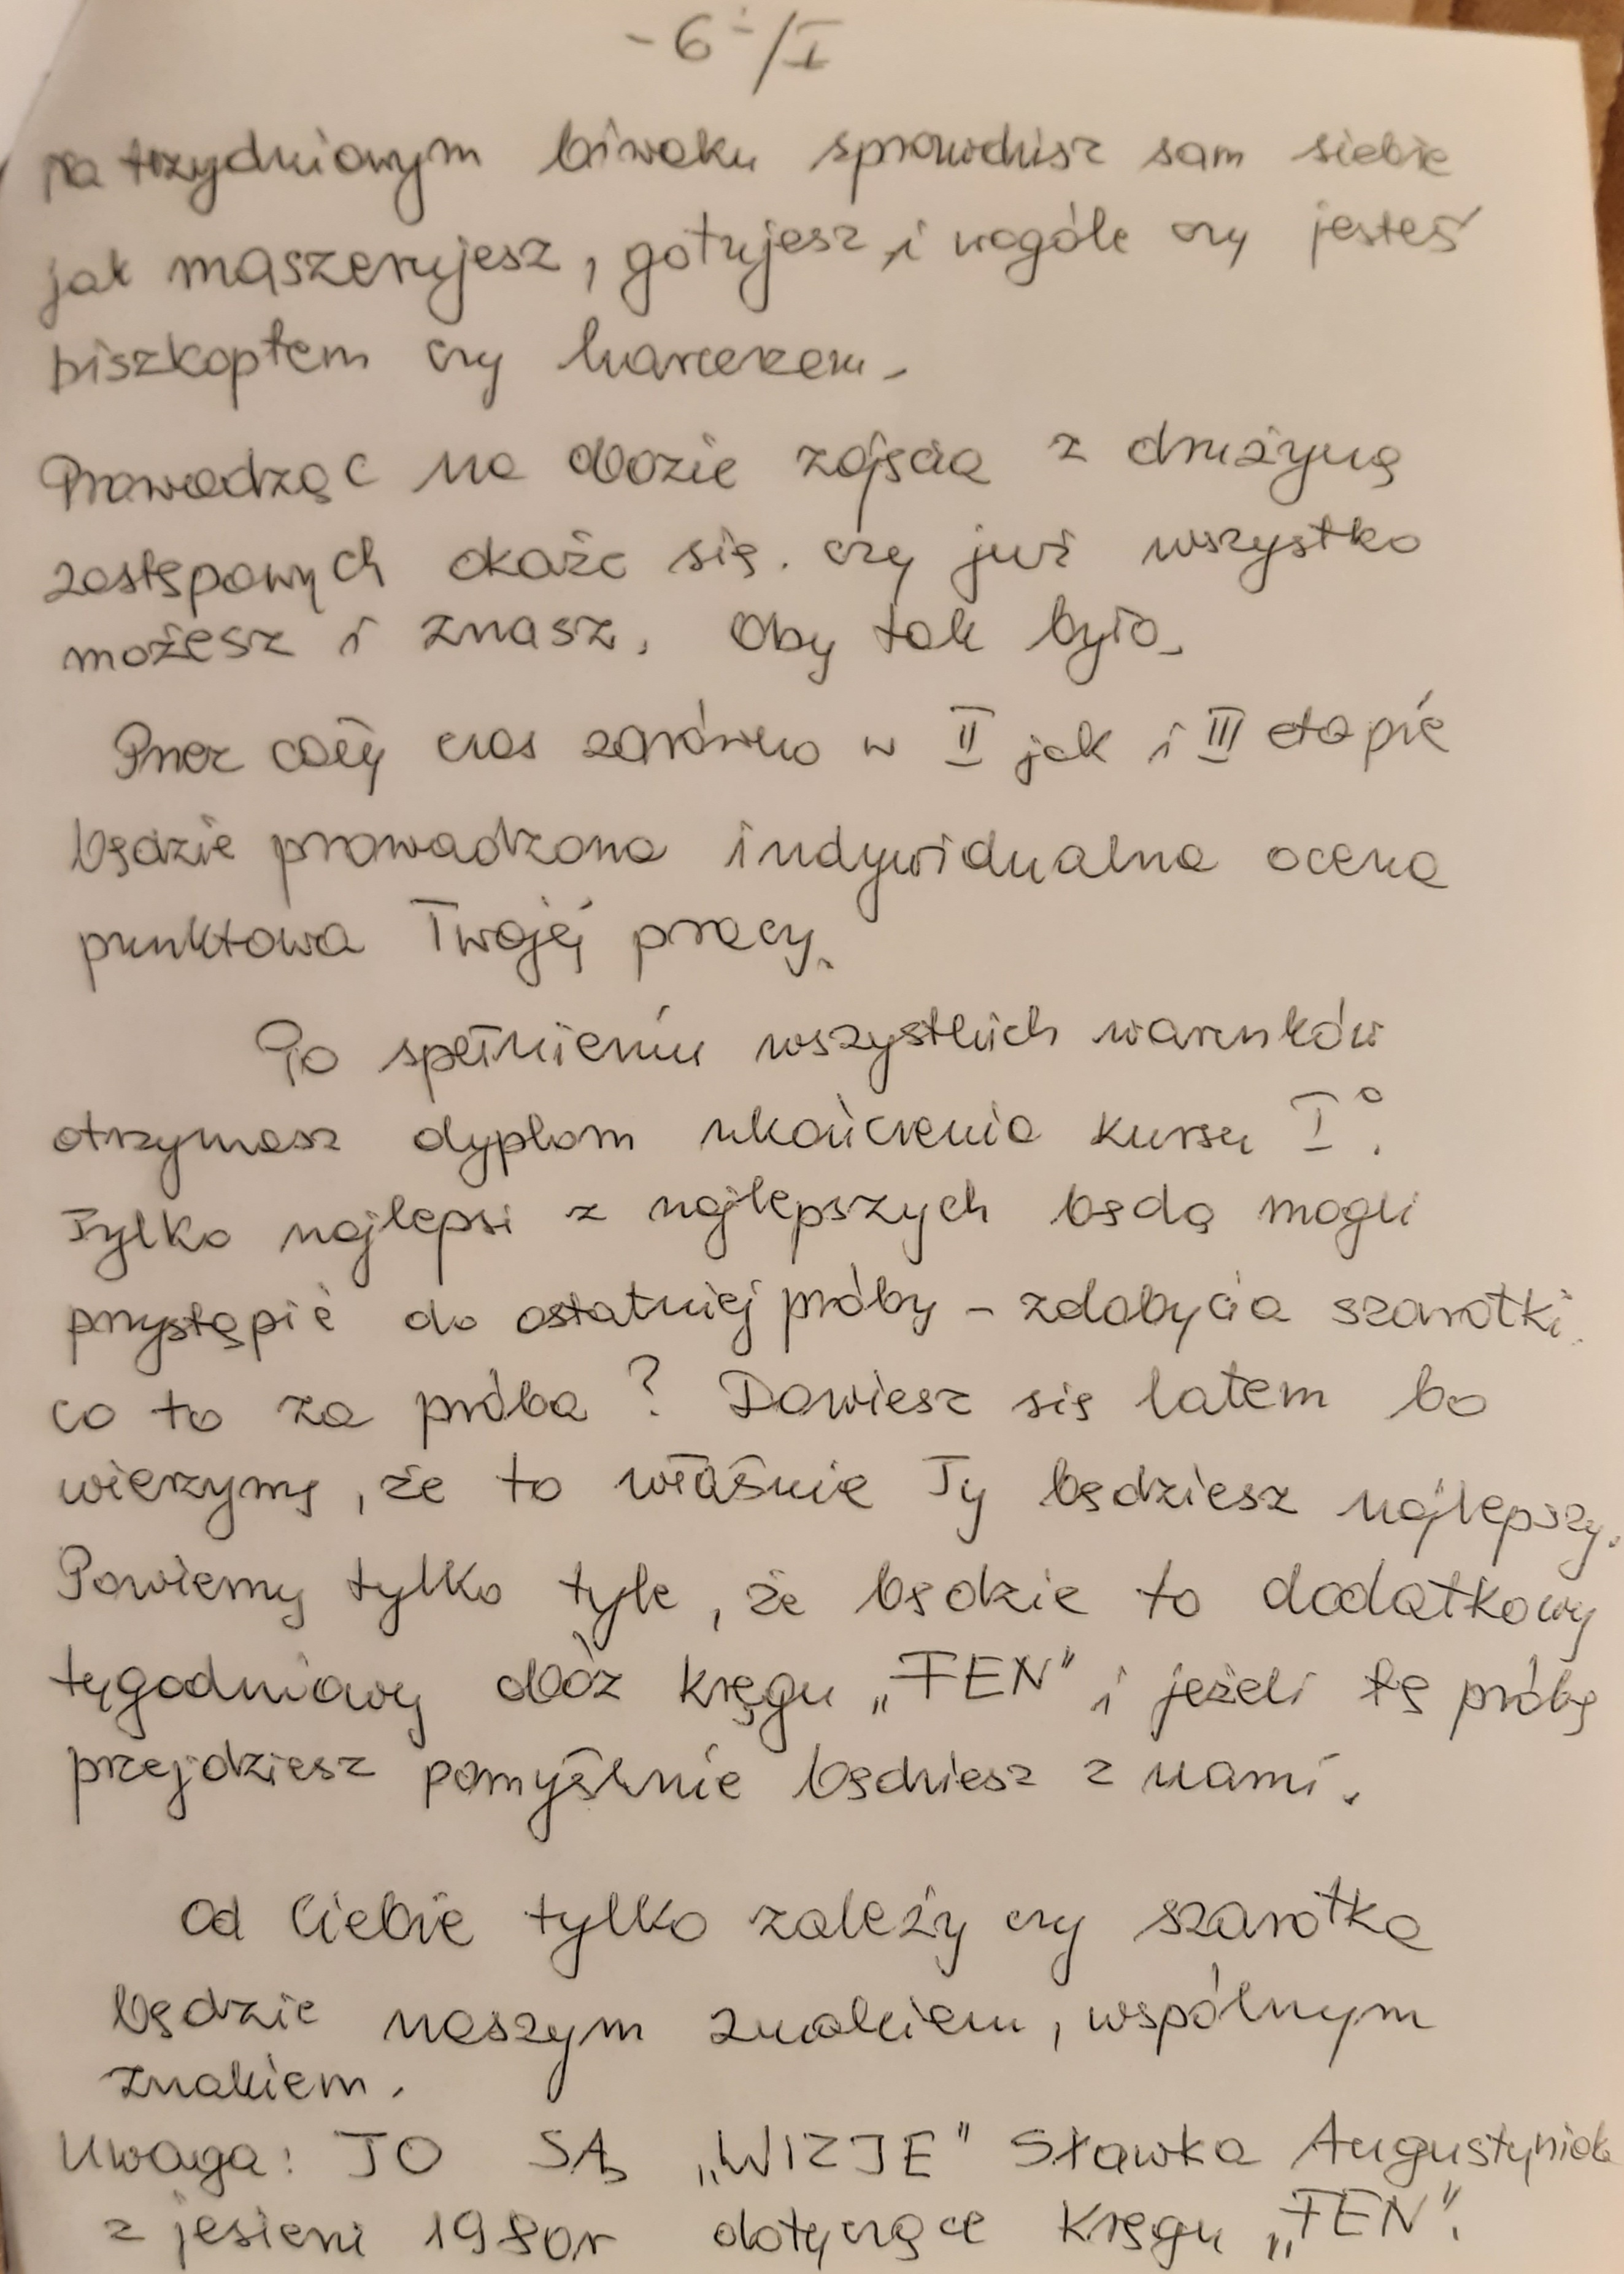 - 6 - / I
na trzydniowym biwaku sprawdzisz sam siebie
jak maszerujesz, gotujesz i wogóle czy jesteś
biszkoptem czy harcerzem.
Prowadząc na obozie zajęcia z drużyną
zastępowych okaże się. czy już wszystko
możesz i znasz. Oby tak było.
Przez cały czas zarówno w II jak i III etapie
będzie prowadzona indywidualna ocena
punktowa Twojej pracy.
Po spełnieniu wszystkich warunków
otrzymasz dyplom ukończenia kursu I°.
Tylko najlepsi z najlepszych będą mogli
przystąpić do ostatniej próby – zdobycia szarotki.
co to za próba? Dowiesz się latem bo
wierzymy, że to właśnie Ty będziesz najlepszy.
Powiemy tylko tyle, że będzie to dodatkowy
tygodniowy obóz kręgu „FEN" i jeżeli tę próbę
przejdziesz pomyślnie będziesz z nami.
Od Ciebie tylko zależy czy szarotka
będzie naszym znakiem, wspólnym
znakiem.
Uwaga: TO SĄ „WIZJE" Sławka Augustyniak
z jesieni 1980r dotyczące Kręgu „FEN".